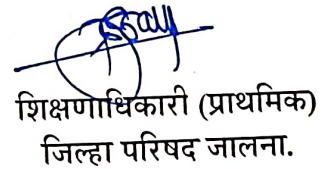 शिक्षणाधिकारी (प्राथमिक)
जिल्हा परिषद जालना.